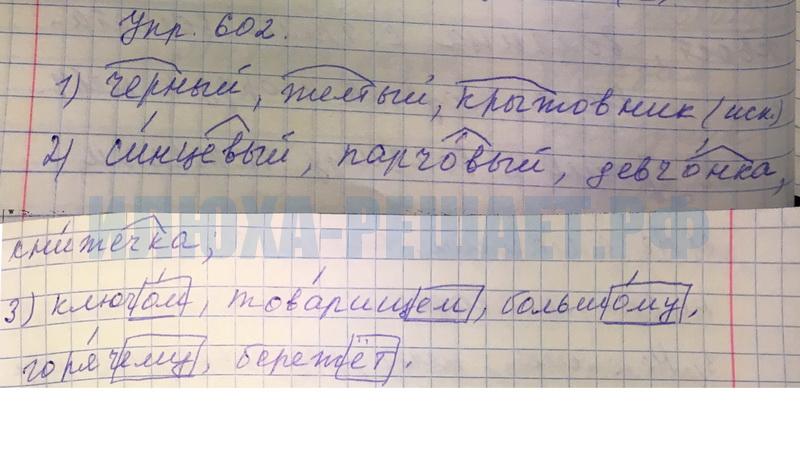 Упр. 602.
1) черный, желтый, крыжовник (иск.)
2) синцевый, парчовый, девчонка,
ИЛЮХА-РЕШАЕТ.РФ
книжечка;
3) ключом, товарищем, большому,
горячему, бережёт.